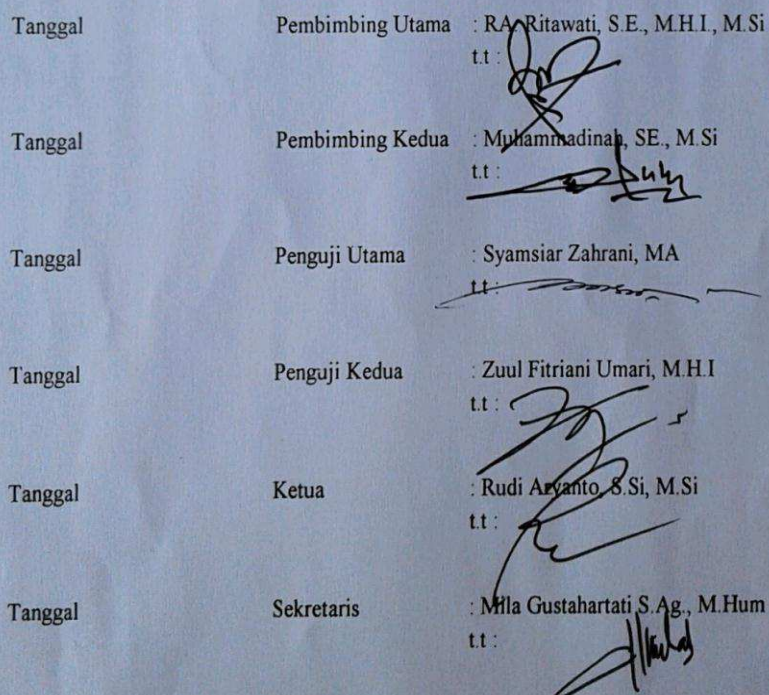 Tanggal Pembimbing Utama : RA. Ritawati, S.E., M.H.I., M.Si
t.t :
Tanggal Pembimbing Kedua : Muhammadinah, SE., M.Si
t.t :
Tanggal Penguji Utama : Syamsiar Zahrani, MA
t.t :
Tanggal Penguji Kedua : Zuul Fitriani Umari, M.H.I
t.t :
Tanggal Ketua : Rudi Aryanto, S.Si, M.Si
t.t :
Tanggal Sekretaris : Mila Gustahartati S.Ag., M.Hum
t.t :